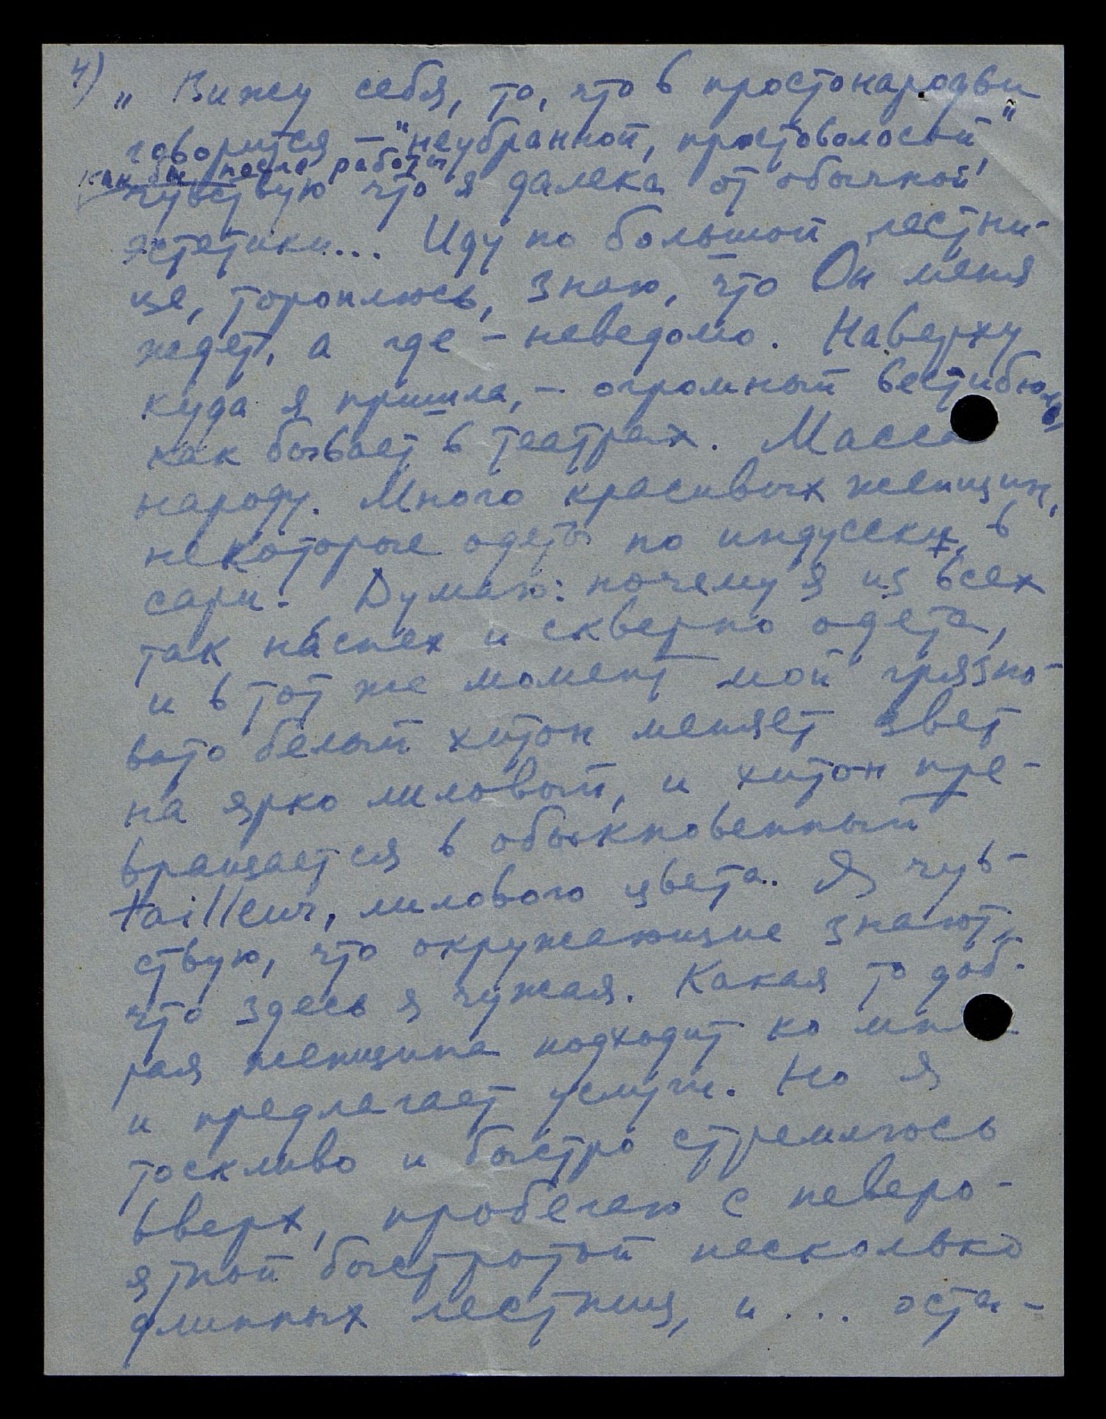 4) „Вижу себя, то, что в простонародьи
говорится – "неубранной, простоволосой",
как бы после работы,
чувствую что я далека от обычной
эстетики... Иду по большой лестни-
це, тороплюсь, знаю, что Он меня
ждет, а где – неведомо. Наверху
куда я пришла, – огромный вестибюль,
как бывает в театрах. Масса
народу. Много красивых женщин,
некоторые одеты по индусски, в
сари. Думаю: почему я из всех
так наспех и скверно одета,
и в тот же момент мой грязно-
вато белый хитон меняет цвет
на ярко лиловый, и хитон пре-
вращается в обыкновенный
tailleur, лилового цвета.. Я чув-
ствую, что окружающие знают,
что здесь я чужая. Какая то доб-
рая женщина подходит ко мне
и предлагает услуги. Но я
тоскливо и быстро стремлюсь
вверх, пробегаю с неверо-
ятной быстротой несколько
длинных лестниц, и... оста-